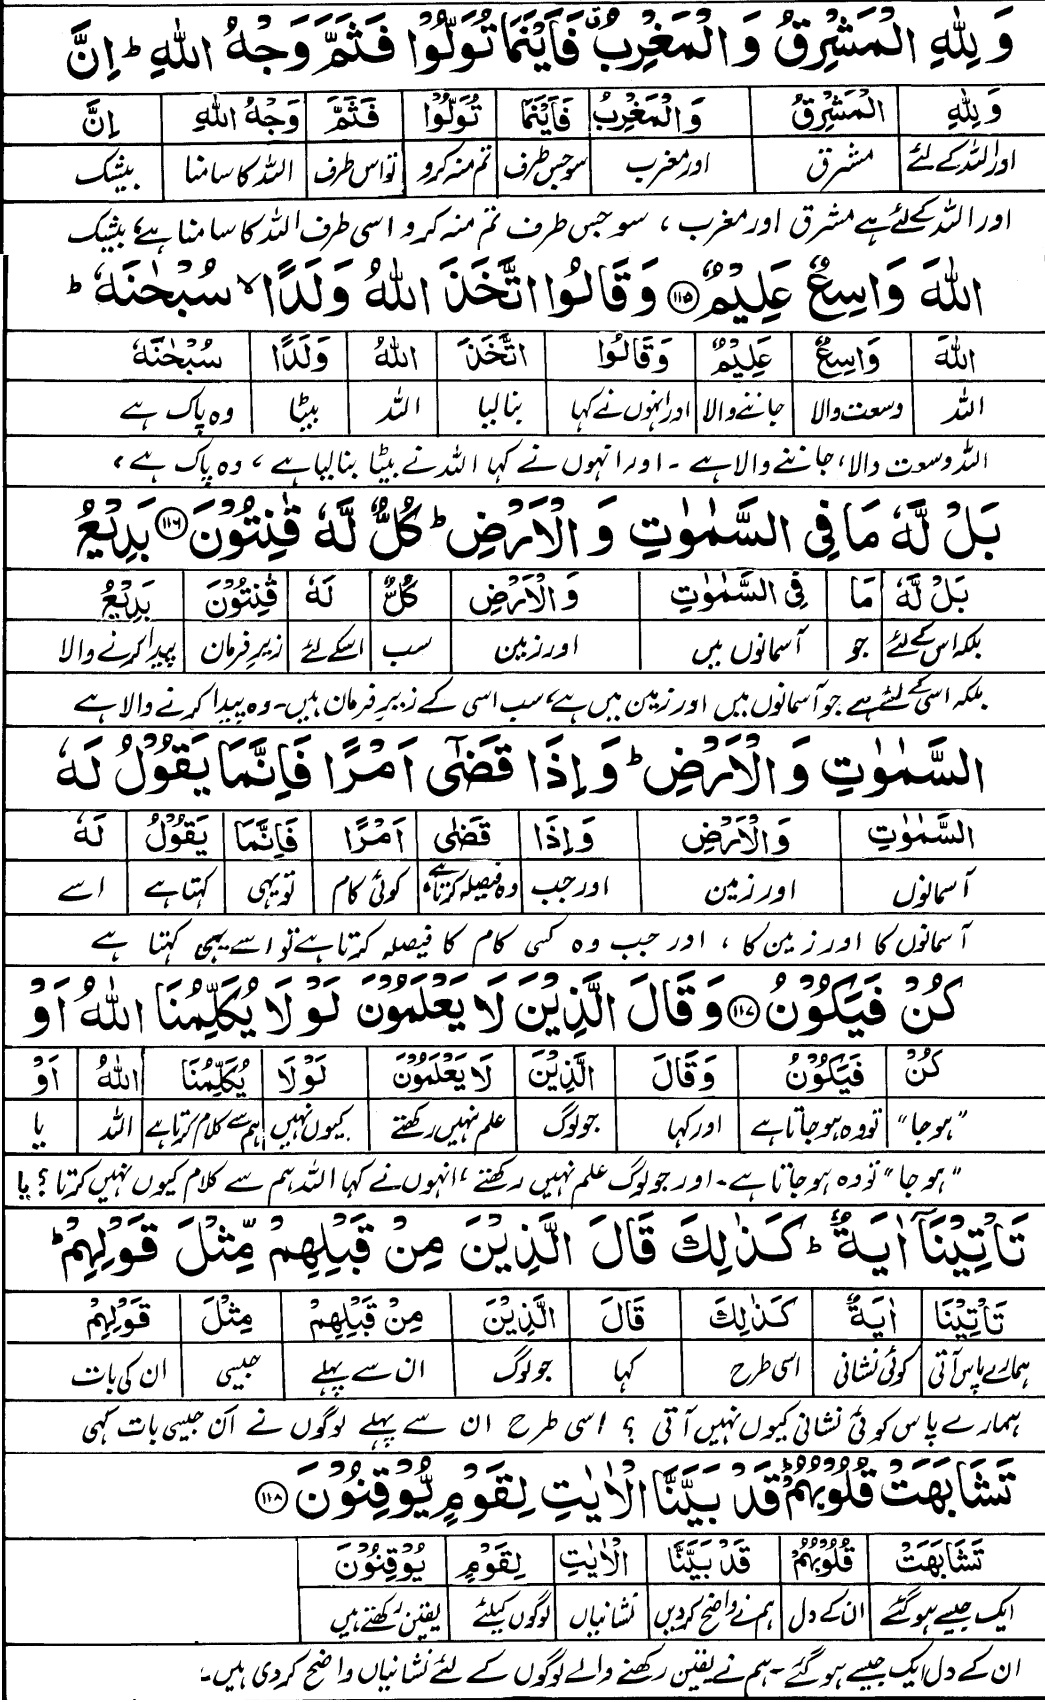 وَ لِلّٰهِ الْمَشْرِقُ وَ الْمَغْرِبُ ۗ فَاَيْنَمَا تُوَلُّوْا فَثَمَّ وَجْهُ اللّٰهِ ؕ اِنَّ
وَ لِلّٰهِ الْمَشْرِقُ وَالْمَغْرِبُ فَاَيْنَمَا تُوَلُّوْا فَثَمَّ وَجْهُ اللّٰهِ اِنَّ
اور اللہ کے لئے مشرق اور مغرب سو جس طرف تم منہ کرو تو اس طرف اللہ کا سامنا بیشک
اور اللہ کے لئے ہے مشرق اور مغرب ، سو جس طرف تم منہ کرو اسی طرف اللہ کا سامنا ہے، بیشک
اللّٰهَ وَاسِعٌ عَلِيْمٌ ۝۱۱۵ وَ قَالُوا اتَّخَذَ اللّٰهُ وَلَدًا ۙ سُبْحٰنَهٗ ؕ
اللّٰهَ وَاسِعٌ عَلِيْمٌ وَقَالُوا اتَّخَذَ اللّٰهُ وَلَدًا سُبْحٰنَهٗ
اللہ وسعت والا جاننے والا اور انہوں نے کہا بنا لیا اللہ بیٹا وہ پاک ہے
اللہ وسعت والا، جاننے والا ہے ۔ اور انہوں نے کہا اللہ نے بیٹا بنا لیا ہے ، وہ پاک ہے ،
بَلْ لَّهٗ مَا فِى السَّمٰوٰتِ وَ الْاَرْضِ ؕ كُلٌّ لَّهٗ قٰنِتُوْنَ ۝۱۱۶ بَدِيْعُ
بَلْ لَّهٗ مَا فِى السَّمٰوٰتِ وَالْاَرْضِ كُلٌّ لَهٗ قٰنِتُوْنَ بَدِيْعُ
بلکہ اس کے لئے جو آسمانوں میں اور زمین سب اسکے لئے زیر فرمان پیدا کرنے والا
بلکہ اسی کے لئے ہے جو آسمانوں میں اور زمین میں ہے، سب اسی کے زیر فرمان ہیں۔ وہ پیدا کرنے والا ہے
السَّمٰوٰتِ وَ الْاَرْضِ ؕ وَ اِذَا قَضٰٓى اَمْرًا فَاِنَّمَا يَقُوْلُ لَهٗ
السَّمٰوٰتِ وَالْاَرْضِ وَاِذَا قَضٰى اَمْرًا فَاِنَّمَا يَقُوْلُ لَهٗ
آسمانوں اور زمین اور جب وہ فیصلہ کرتا ہے کوئی کام تو یہی کہتا ہے اسے
آسمانوں کا اور زمین کا ، اور جب وہ کسی کام کا فیصلہ کرتا ہے تو اسے یہی کہتا ہے
كُنْ فَيَكُوْنُ ۝۱۱۷ وَ قَالَ الَّذِيْنَ لَا يَعْلَمُوْنَ لَوْ لَا يُكَلِّمُنَا اللّٰهُ اَوْ
كُنْ فَيَكُوْنُ وَقَالَ الَّذِيْنَ لَا يَعْلَمُوْنَ لَوْلَا يُكَلِّمُنَا اللّٰهُ اَوْ
"ہو جا" تو وہ ہو جاتا ہے اور کہا جو لوگ علم نہیں رکھتے کیوں نہیں ہم سے کلام کرتا ہے اللہ یا
"ہو جا" تو وہ ہو جاتا ہے۔ اور جو لوگ علم نہیں رکھتے ، انہوں نے کہا اللہ ہم سے کلام کیوں نہیں کرتا ؟ یا
تَاْتِيْنَآ اٰيَةٌ ؕ كَذٰلِكَ قَالَ الَّذِيْنَ مِنْ قَبْلِهِمْ مِّثْلَ قَوْلِهِمْ ؕ
تَاْتِيْنَا اٰيَةٌ كَذٰلِكَ قَالَ الَّذِيْنَ مِنْ قَبْلِهِمْ مِثْلَ قَوْلِهِمْ
ہمارے پاس آتی کوئی نشانی اسی طرح کہا جو لوگ ان سے پہلے جیسی ان کی بات
ہمارے پاس کوئی نشانی کیوں نہیں آتی ؟ اسی طرح ان سے پہلے لوگوں نے ان جیسی بات کہی
تَشَابَهَتْ قُلُوْبُهُمْ ؕ قَدْ بَيَّنَّا الْاٰيٰتِ لِقَوْمٍ يُّوْقِنُوْنَ ۝۱۱۸
تَشَابَهَتْ قُلُوْبُهُمْ قَدْ بَيَّنَّا الْاٰيٰتِ لِقَوْمٍ يُوْقِنُوْنَ
ایک جیسے ہو گئے ان کے دل ہم نے واضح کر دیں نشانیاں لوگوں کیلئے یقین رکھتے ہیں
ان کے دل ایک جیسے ہو گئے ۔ ہم نے یقین رکھنے والے لوگوں کے لئے نشانیاں واضح کر دی ہیں۔